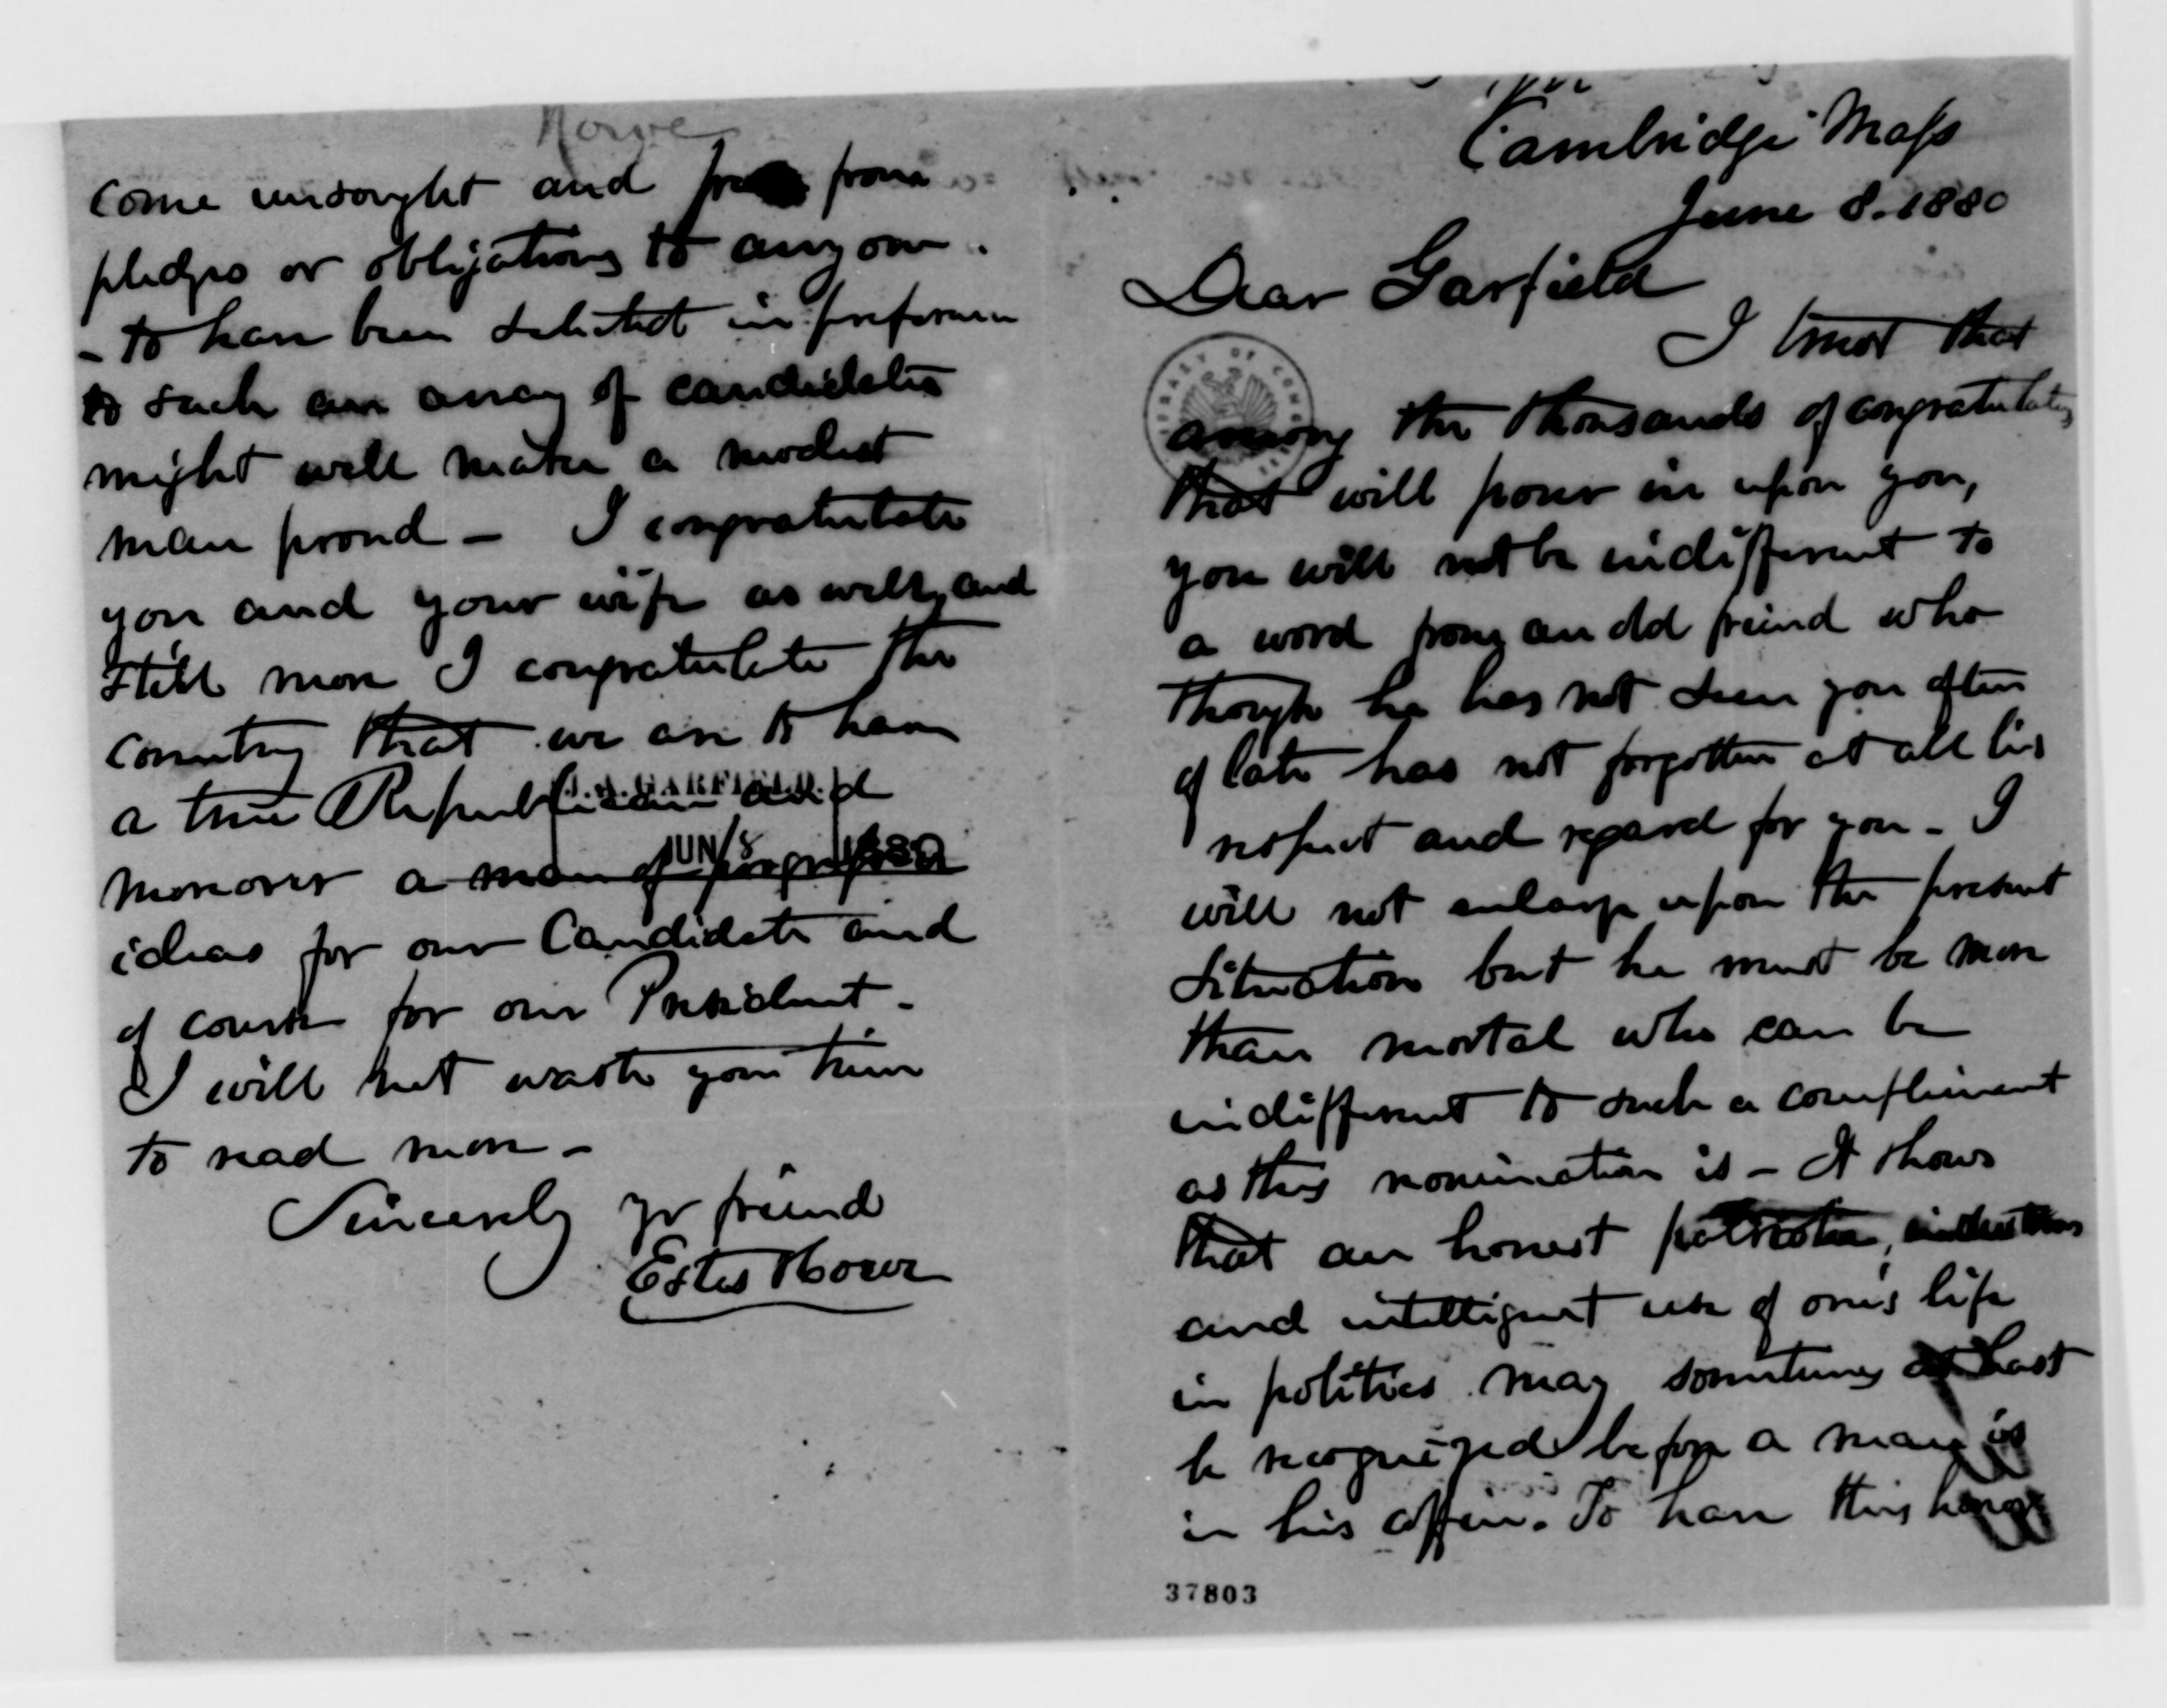 Cambridge Mass
June 8. 1880
Dear Garfield
I trust that
among the thousands of congratulations
that will pour in upon you,
you will not be indifferent to
a word from an old friend who
though he has not seen you often
of late has not forgotten at all his
respect and regard for you - I
will not enlarge upon the present
situation but he must be more
than mortal who can be
indifferent to such a compliment
as this nomination is - It shows
that an honest patriotic,
and intelligent use of one's life
in politics may sometimes at last
be recognized before a man is
in his coffin. To have this honor
37803
Howe
come unsought and free from
pledges or obligations to anyone.
- to have been selected in preference
to such an array of candidates
might well make a modest
man proud - I congratulate
you and your wife as well, and
still more I congratulate the
country that we are to have
a true Republican and
JUN 8 1880
moreover a man of progressive
ideas for our Candidate and
of course for our President -
I will not waste your time
to read more -
Sincerely yr friend
Estes Howe